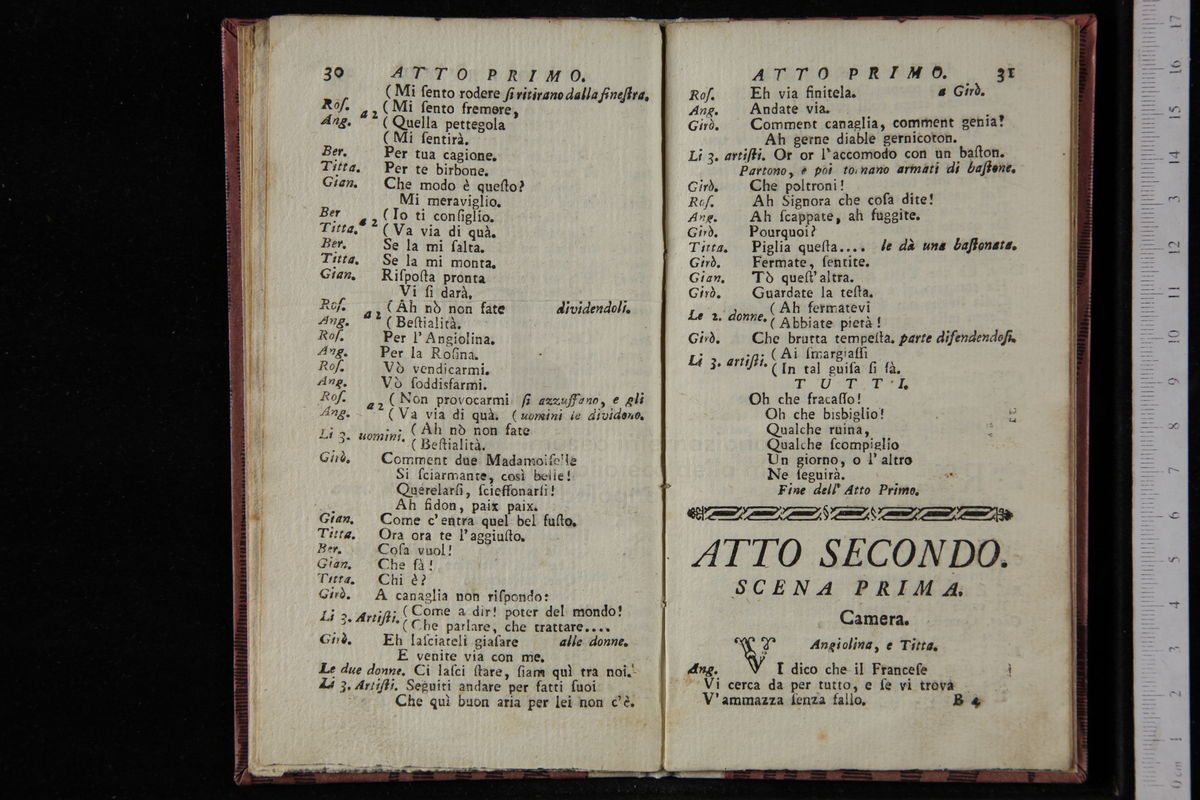 30 ATTO PRIMO.
(Mi ſento rodere ſi ritirano dalla fineſtra.
Roſ. a 2 (Mi ſento fremere,
Ang. (Quella pettegola
(Mi ſentirà.
Ber. Per tua cagione.
Titta. Per te birbone.
Gian. Che modo è queſto?
Mi meraviglio.
Ber a 2 (Io ti conſiglio.
Titta. (Va via di quà.
Ber. Se la mi ſalta.
Titta. Se la mi monta.
Gian. Riſpoſta pronta
Vi ſi darà.
Roſ. a 2 (Ah nò non fate dividendoli.
Ang. (Beſtialità.
Roſ. Per l'Angiolina.
Ang. Per la Roſina.
Roſ. Vò vendicarmi.
Ang. Vò ſoddisfarmi.
Roſ. a 2 (Non provocarmi ſi azzuffano, e gli
Ang. (Va via di quà. (uomini le dividono.
Li 3. uomini. (Ah nò non fate
(Beſtialità.
Girò. Comment due Madamoiſelle
Si ſciarmante, così belle!
Querelarſi, ſcieffonarſi!
Ah fidon, paix paix.
Gian. Come c'entra quel bel fuſto.
Titta. Ora ora te l'aggiuſto.
Ber. Coſa vuol!
Gian. Che fà!
Titta. Chi è?
Girò. A canaglia non riſpondo:
Li 3. Artiſti. (Come a dir! poter del mondo!
(Che parlare, che trattare....
Girò. Eh laſciateli giaſare alle donne.
E venite via con me.
Le due donne. Ci laſci ſtare, ſiam quì tra noi.
Li 3. Artiſti. Seguiti andare per fatti ſuoi
Che quì buon aria per lei non c'è.
ATTO PRIMO. 31
Roſ. Eh via finitela. a Girò.
Ang. Andate via.
Girò. Comment canaglia, comment genia?
Ah gerne diable gernicoton.
Li 3. artiſti. Or or l'accomodo con un baſton.
Partono, e poi tornano armati di baſtone.
Girò. Che poltroni!
Roſ. Ah Signora che coſa dite!
Ang. Ah ſcappate, ah fuggite.
Girò. Pourquoi?
Titta. Piglia queſta.... le dà una baſtonata.
Girò. Fermate, ſentite.
Gian. Tò queſt'altra.
Girò. Guardate la teſta.
Le 2. donne. (Ah fermatevi
(Abbiate pietà!
Girò. Che brutta tempeſta. parte difendendoſi.
Li 3. artiſti. (Ai ſmargiaſſi
(In tal guiſa ſi fà.
TUTTI.
Oh che fracaſſo!
Oh che bisbiglio!
Qualche ruina,
Qualche ſcompiglio
Un giorno, o l'altro
Ne ſeguirà.
Fine dell' Atto Primo.
ATTO SECONDO.
SCENA PRIMA.
Camera.
Angiolina, e Titta.
Ang. VI dico che il Franceſe
Vi cerca da per tutto, e ſe vi trova
V'ammazza ſenza fallo. B 4